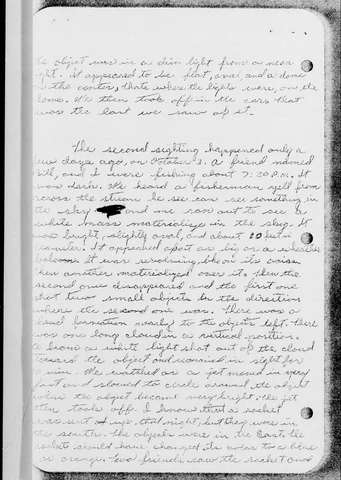 object was in a dim light from a neon
. It appeared to be flat, oval, and a dome
the center, thats where the lights were, on the
dome. We then took off in the cars that
was the last we saw of it.
The second sighting happened only a
few days ago, on October 3. A friend named
and I were fishing about 7:30 P.M. It
was dark. We heard a fisherman yell from
across the stream he can see something in
the sky and we ran out to see a
white mass materialize in the sky. It
was bright, slightly oval, and about 10 feet in
diameter. It appeared about as big as a weather
baloon. It was revolving on its axis,
then another materialized over it. Then the
second one disappeared and the first one
shot two small objects in the direction
where the second one was. There was a
cloud formation nearby to the objects left. There
was one long cloud in a vertical position.
a white light shot out of the cloud
toward the object and remained in sight for
min. We watched as a jet moved in very
fast and slowed to circle around the object
when the object became very bright. The jet
then took off. I know that a rocket
was sent up that night, but they were in
the south. The objects were in the East. The
rockets should have changed its color to blue
or orange. Two friends saw the rocket and